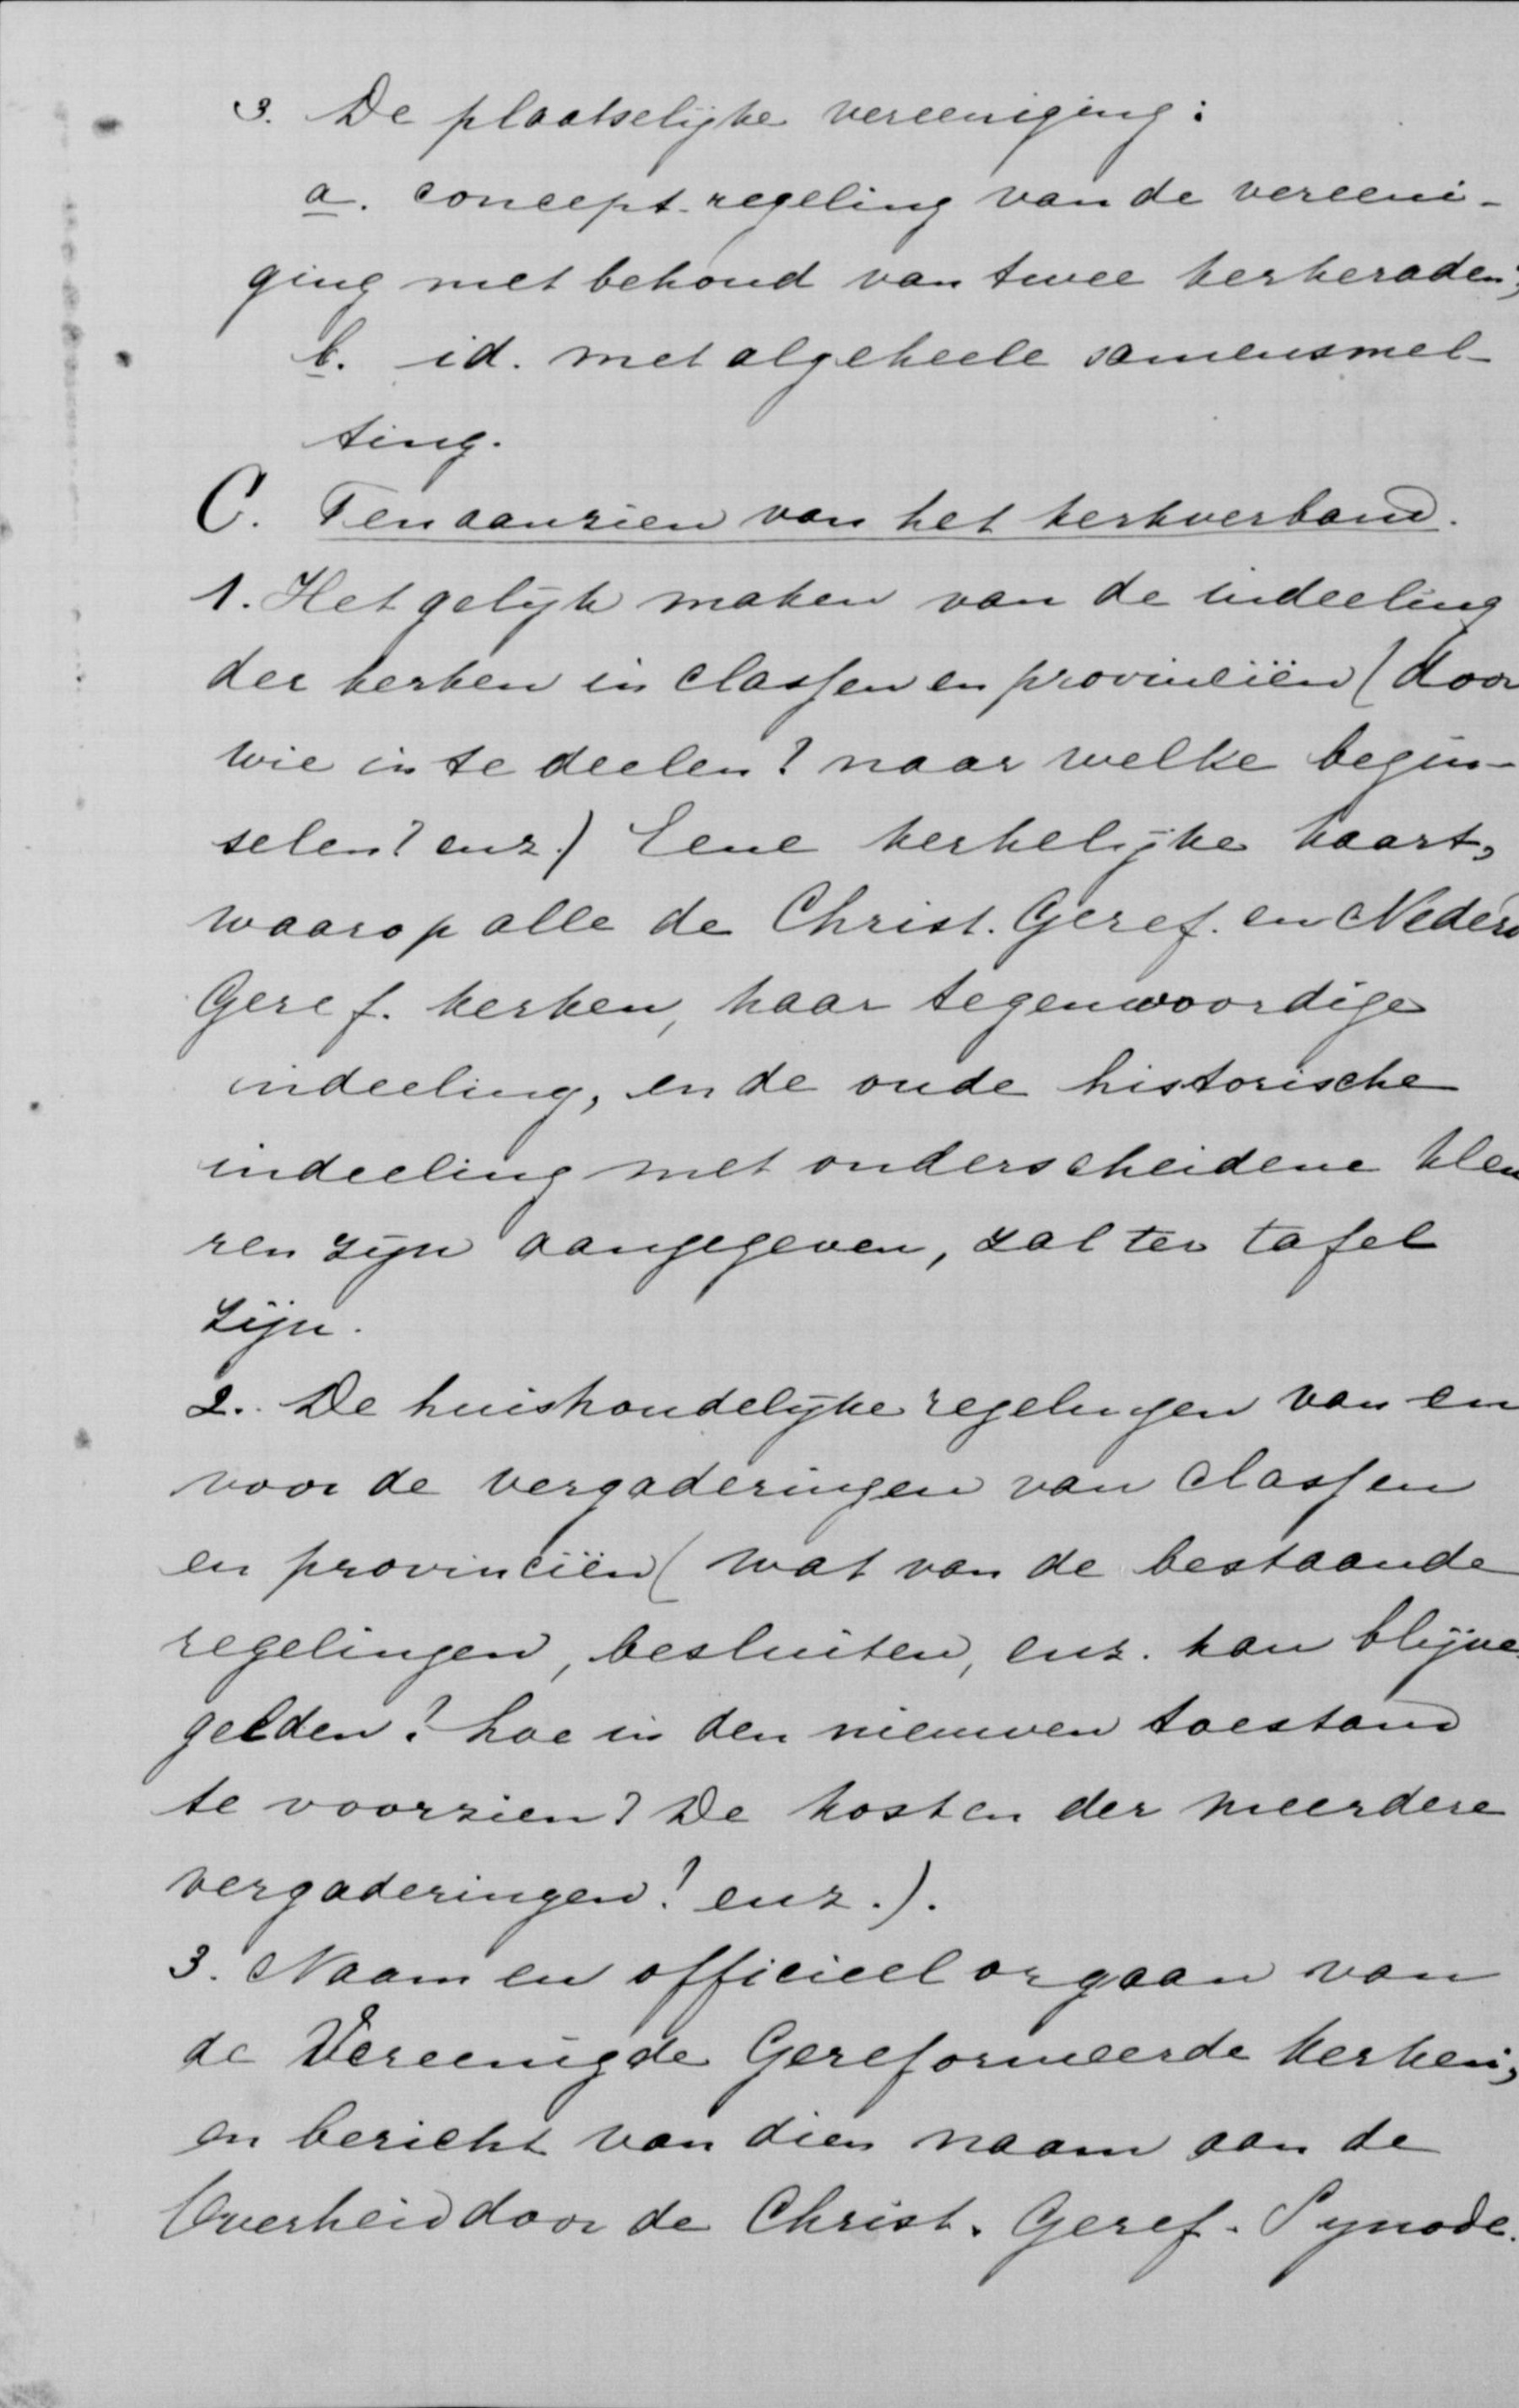 3. De plaatselijke vereeniging:
a. concept-regeling van de vereeni-
ging met behoud van twee kerkeraden;
b. id. met algeheele samensmel-
ting.
C. Ten aanzien van het kerkverband.
1. Het gelijk maken van de indeeling
der kerken in classen en provinciën (door
wie in te deelen? naar welke begin-
selen? enz.) Eene kerkelijke kaart,
waarop alle de Christ. Geref. en Nederd
Geref. kerken, haar tegenwoordige
indeeling, en de oude historische
indeeling met onderscheidene kleu
ren zijn aangegeven, zal ter tafel
zijn.
2. De huishoudelijke regelingen van en
voor de vergaderingen van classen
en provinciën (wat van de bestaande
regelingen, besluiten, enz. kan blijve
gelden? hoe in den nieuwen toestand
te voorzien? De kosten der meerdere
vergaderingen? enz.).
3. Naam en officieel orgaan van
de Vereenigde Gereformeerde kerken;
en bericht van dien naam aan de
Overheid door de Christ. Geref. Synode.